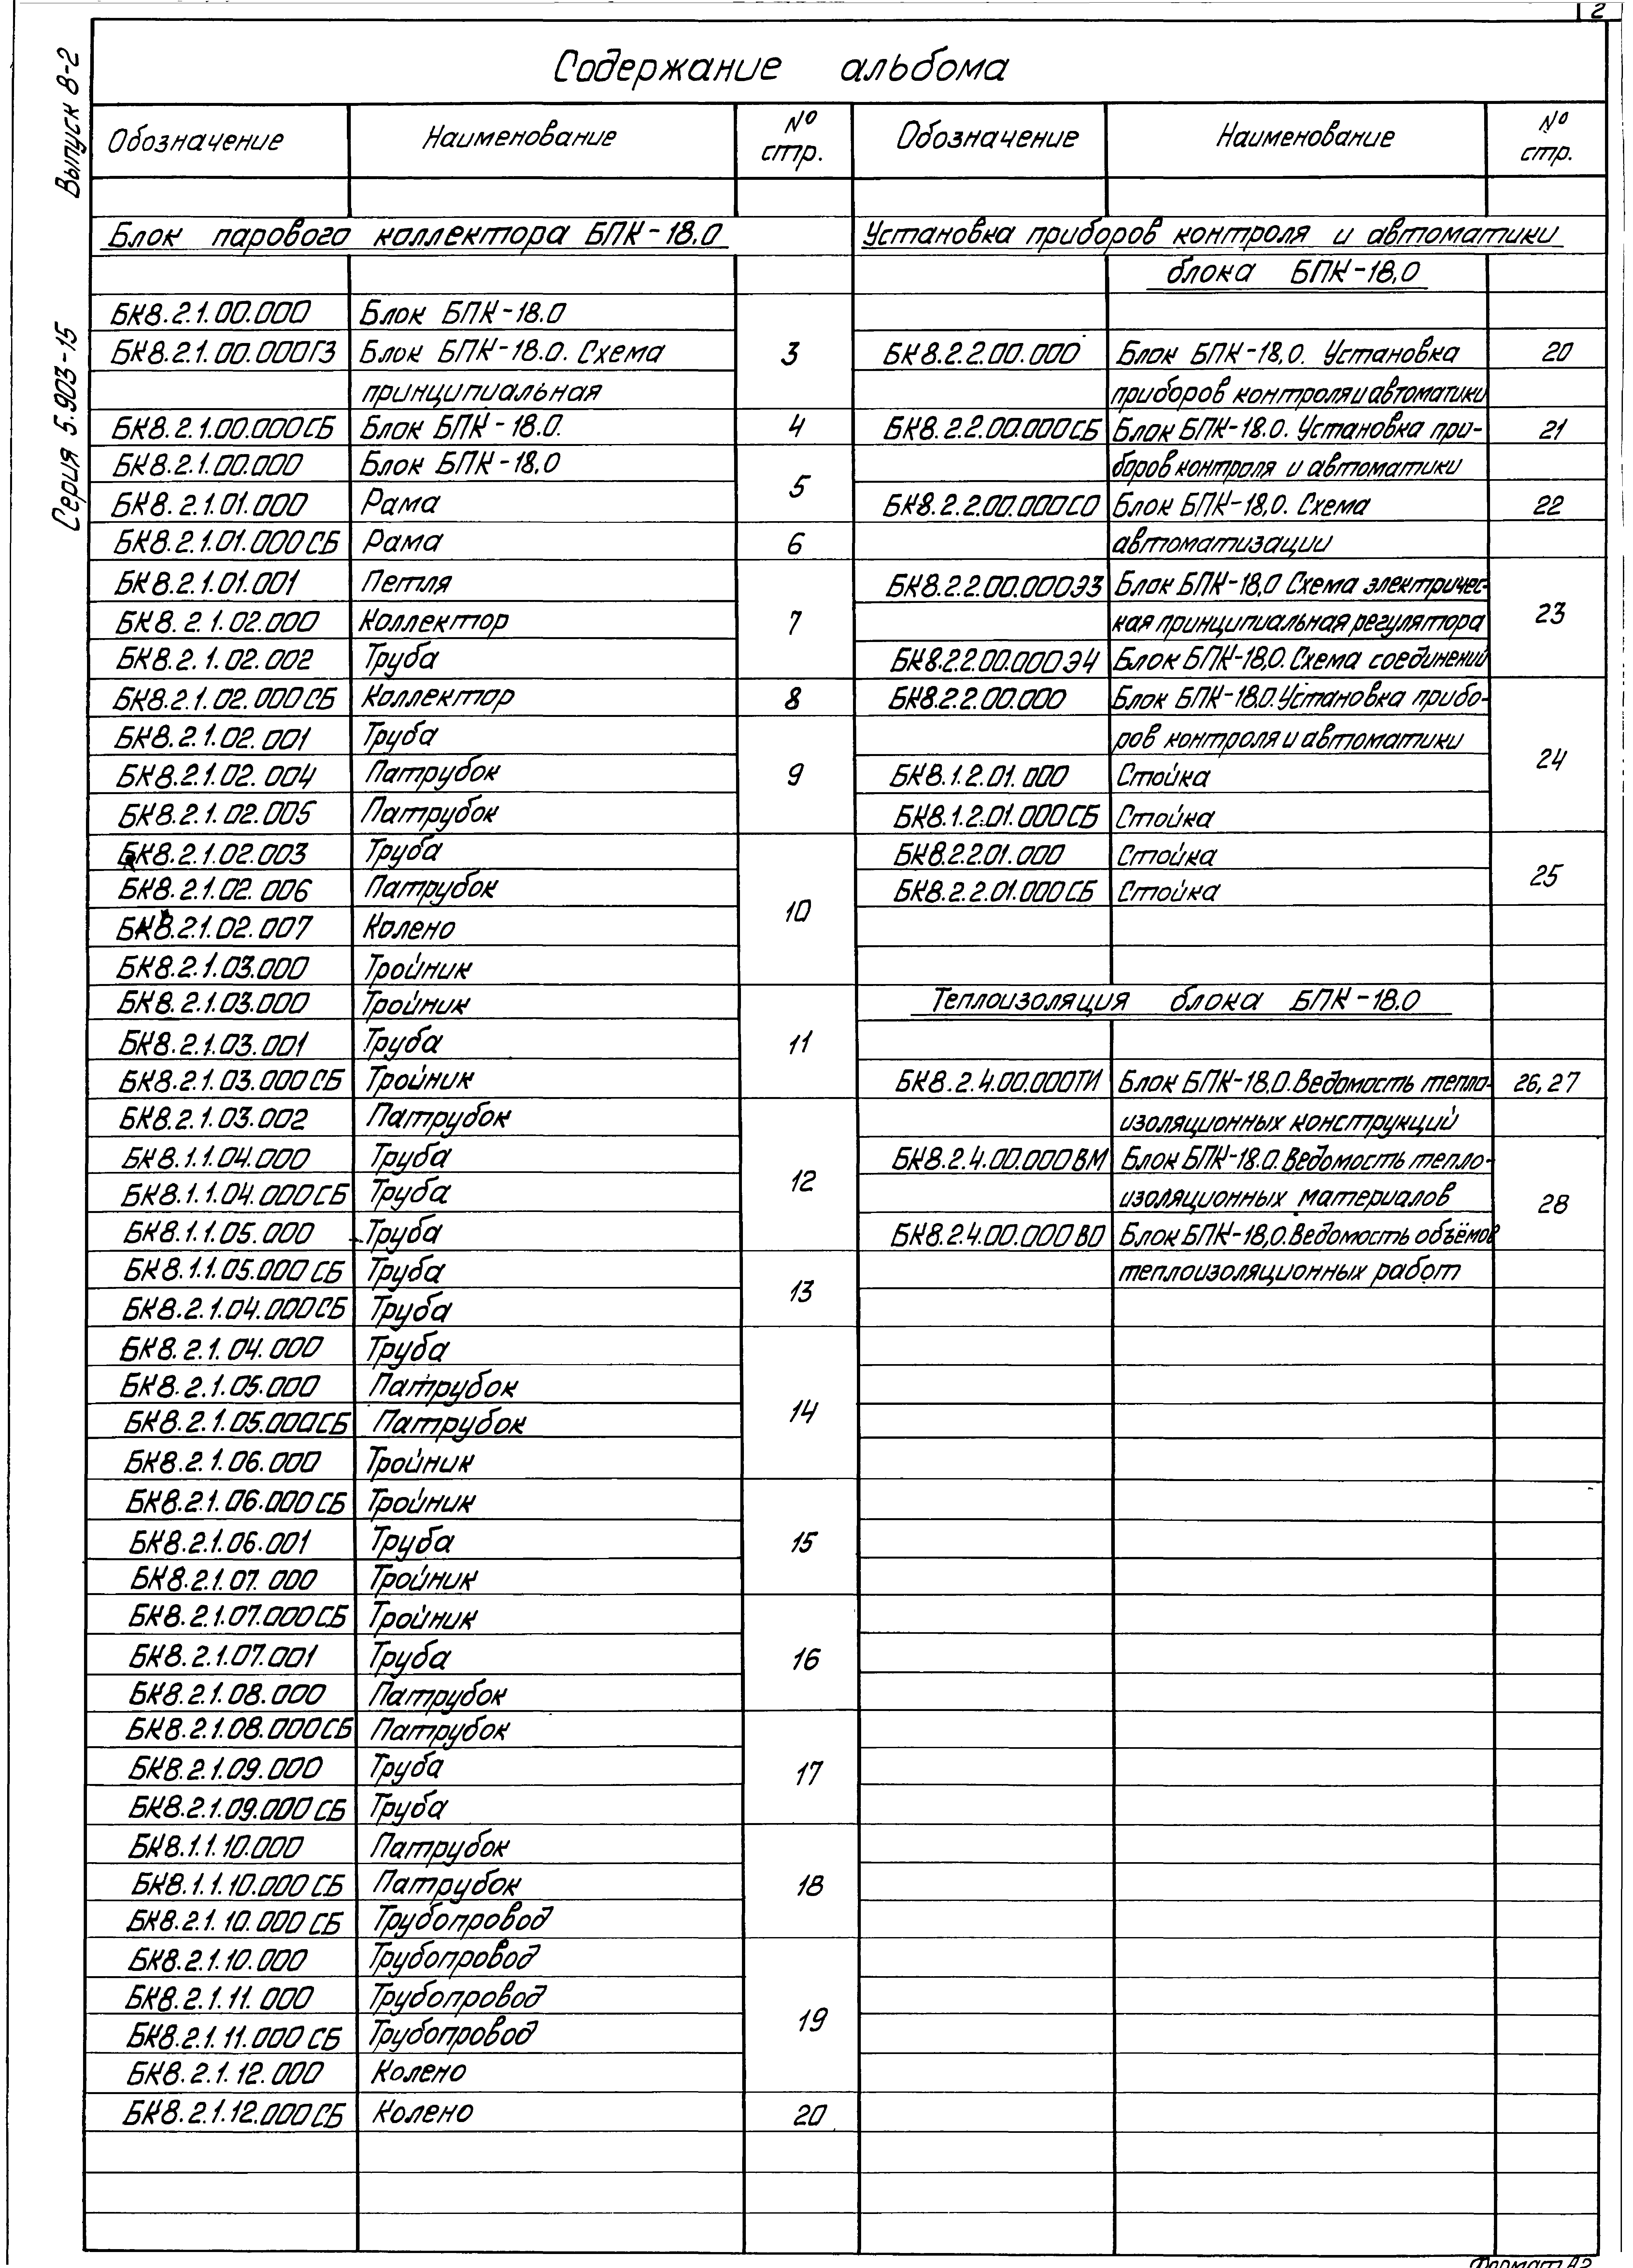 2
Выпуск 8-2
Серия 5.903-15
Содержание альбома
Обозначение Наименование № стр.
Блок парового коллектора БПК-18.0
БК8.2.1.00.000 Блок БПК-18.0
БК8.2.1.00.000Г3 Блок БПК-18.0. Схема 3
принципиальная
БК8.2.1.00.000СБ Блок БПК-18.0. 4
БК8.2.1.00.000 Блок БПК-18,0
5
БК8.2.1.01.000 Рама
БК8.2.1.01.000СБ Рама 6
БК8.2.1.01.001 Петля
БК8.2.1.02.000 Коллектор 7
БК8.2.1.02.002 Труба
БК8.2.1.02.000СБ Коллектор 8
БК8.2.1.02.001 Труба
БК8.2.1.02.004 Патрубок 9
БК8.2.1.02.005 Патрубок
БК8.2.1.02.003 Труба
БК8.2.1.02.006 Патрубок
10
БК8.21.02.007 Колено
БК8.2.1.03.000 Тройник
БК8.2.1.03.000 Тройник
БК8.2.1.03.001 Труба 11
БК8.2.1.03.000СБ Тройник
БК8.2.1.03.002 Патрубок
БК8.1.1.04.000 Труба
12
БК8.1.1.04.000СБ Труба
БК8.1.1.05.000 Труба
БК8.1.1.05.000СБ Труба
13
БК8.2.1.04.000СБ Труба
БК8.2.1.04.000 Труба
БК8.2.1.05.000 Патрубок
14
БК8.2.1.05.000СБ Патрубок
БК8.2.1.06.000 Тройник
БК8.2.1.06.000СБ Тройник
БК8.2.1.06.001 Труба 15
БК8.2.1.07.000 Тройник
БК8.2.1.07.000СБ Тройник
БК8.2.1.07.001 Труба 16
БК8.2.1.08.000 Патрубок
БК8.2.1.08.000СБ Патрубок
БК8.2.1.09.000 Труба 17
БК8.2.1.09.000СБ Труба
БК8.1.1.10.000 Патрубок
БК8.1.1.10.000СБ Патрубок 18
БК8.2.1.10.000СБ Трубопровод
БК8.2.1.10.000 Трубопровод
БК8.2.1.11.000 Трубопровод
19
БК8.2.1.11.000СБ Трубопровод
БК8.2.1.12.000 Колено
БК8.2.1.12.000СБ Колено 20
Обозначение Наименование № стр.
Установка приборов контроля и автоматики
блока БПК-18,0
БК8.2.2.00.000 Блок БПК-18,0. Установка 20
приборов контроля и автоматики
БК8.2.2.00.000СБ Блок БПК-18.0. Установка при- 21
боров контроля и автоматики
БК8.2.2.00.000СО Блок БПК-18,0. Схема 22
автоматизации
БК8.2.2.00.000Э3 Блок БПК-18,0 Схема электричес-
кая принципиальная регулятора 23
БК8.2.2.00.000Э4 Блок БПК-18,0. Схема соединений
БК8.2.2.00.000 Блок БПК-18.0. Установка прибо-
ров контроля и автоматики
24
БК8.1.2.01.000 Стойка
БК8.1.2.01.000СБ Стойка
БК8.2.2.01.000 Стойка
25
БК8.2.2.01.000СБ Стойка
Теплоизоляция блока БПК-18.0
БК8.2.4.00.000ТИ Блок БПК-18,0. Ведомость тепло- 26,27
изоляционных конструкций
БК8.2.4.00.000ВМ Блок БПК-18.0. Ведомость тепло-
изоляционных материалов 28
БК8.2.4.00.000ВО Блок БПК-18,0. Ведомость объёмов
теплоизоляционных работ
Формат А3